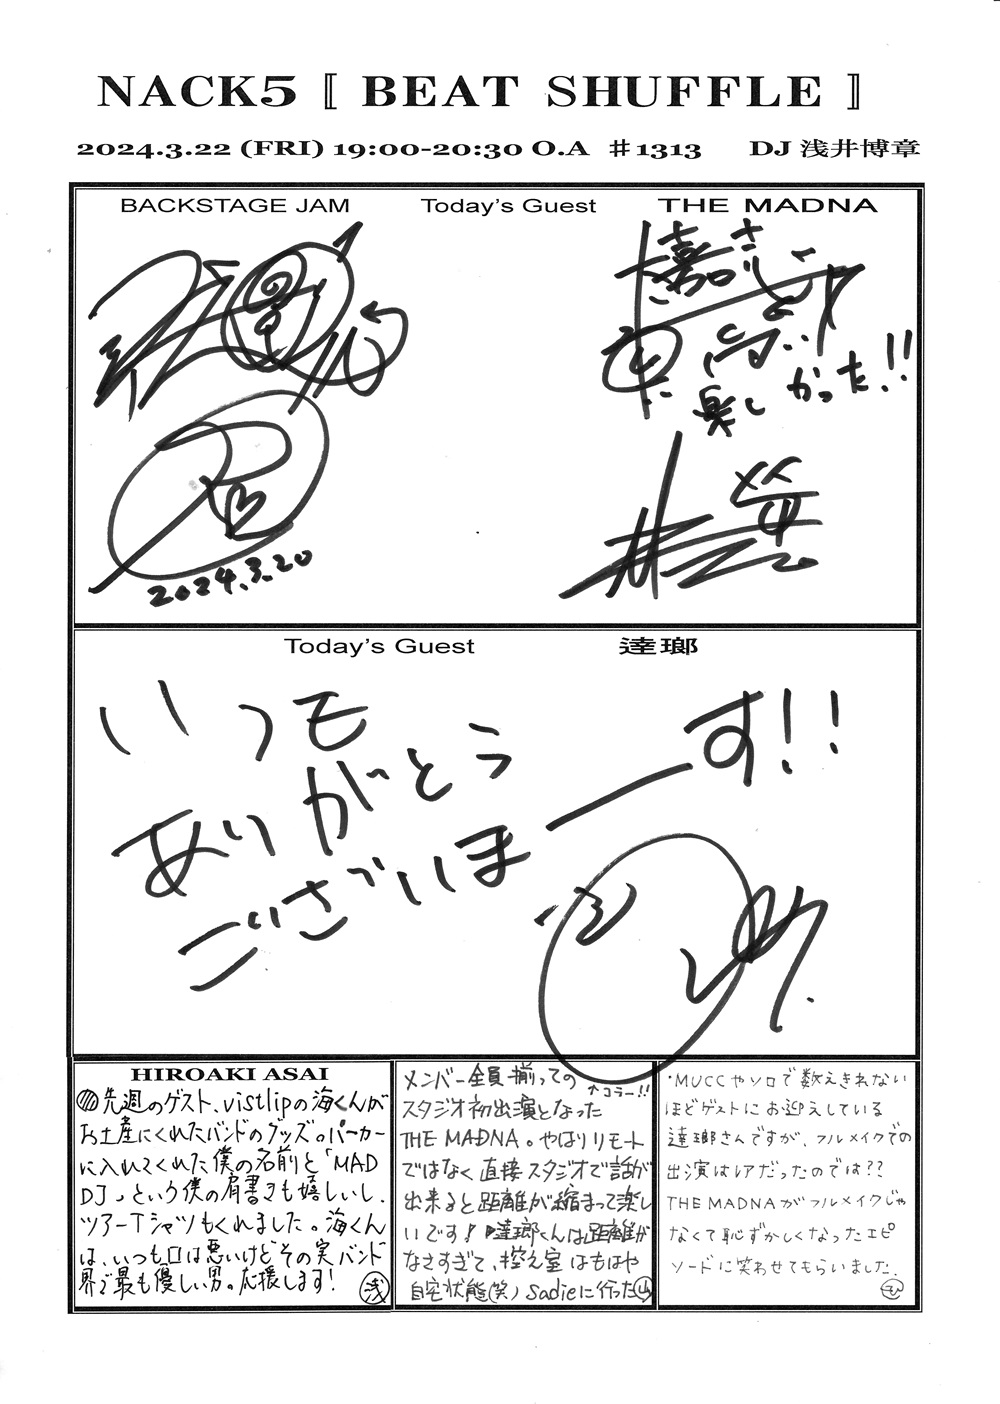 NACK5 〚 BEAT SHUFFLE 〛
2024.3.22 (FRI) 19:00-20:30 O.A ♯1313 DJ 浅井博章
BACKSTAGE JAM Today's Guest THE MADNA
楽しかった!!
2024.3.20
Today's Guest 逹瑯
いつも
ありがとう
ございまーす!!
HIROAKI ASAI
先週のゲスト、vistlipの海くんが
お土産にくれたバンドのグッズ。パーカー
に入れてくれた僕の名前と「MAD
DJ」という僕の肩書きも嬉しいし、
ツアーTシャツもくれました。海くん
は、いつも口は悪いけどその実バンド
界で最も優しい男。応援します! 浅
メンバー全員揃っての
↑コラー!!
スタジオ初出演となった
THE MADNA。やはりリモート
ではなく直接スタジオで話が
出来ると距離が縮まって楽し
いです! 逹瑯くんは距離が
なさすぎて、控え室はもはや
自宅状態(笑) Sadieに行った
・MUCCやソロで数えきれない
ほどゲストにお迎えしている
逹瑯さんですが、フルメイクでの
出演はレアだったのでは??
THE MADNAがフルメイクじゃ
なくて恥ずかしくなったエピ
ソードに笑わせてもらいました。